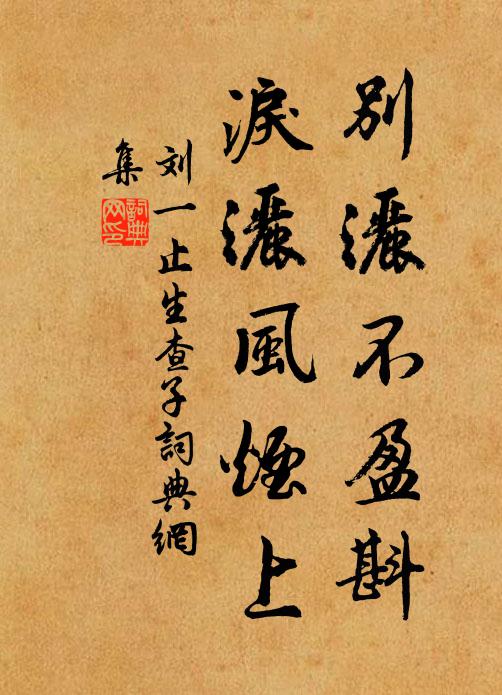 別灑不盈斟
淚灑風煙上
刘一止生查子詞典網
集
詞典网印